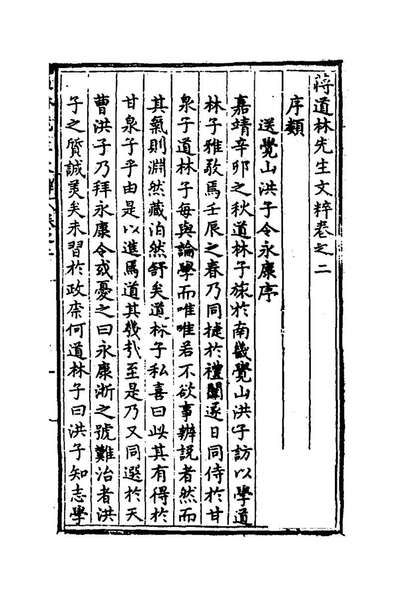 蔣道林先生文粹卷之二
序類
送覺山洪子令永康序
嘉靖辛卯之秋道林子旅於南畿覺山洪子訪以學道
林子雅敬焉壬辰之春乃同捷於禮闈遂日同侍於甘
泉子道林子每與論學而唯唯若不欲事辨說者然而
其氣則淵然藏泊然舒矣道林子私喜曰此其有得於
甘泉子乎由是以進焉道其幾於至是乃又同選於天
曹洪子乃拜永康令或憂之曰永康浙之號難治者洪
子之質誠美矣未習於政柰何道林子曰洪子知志學